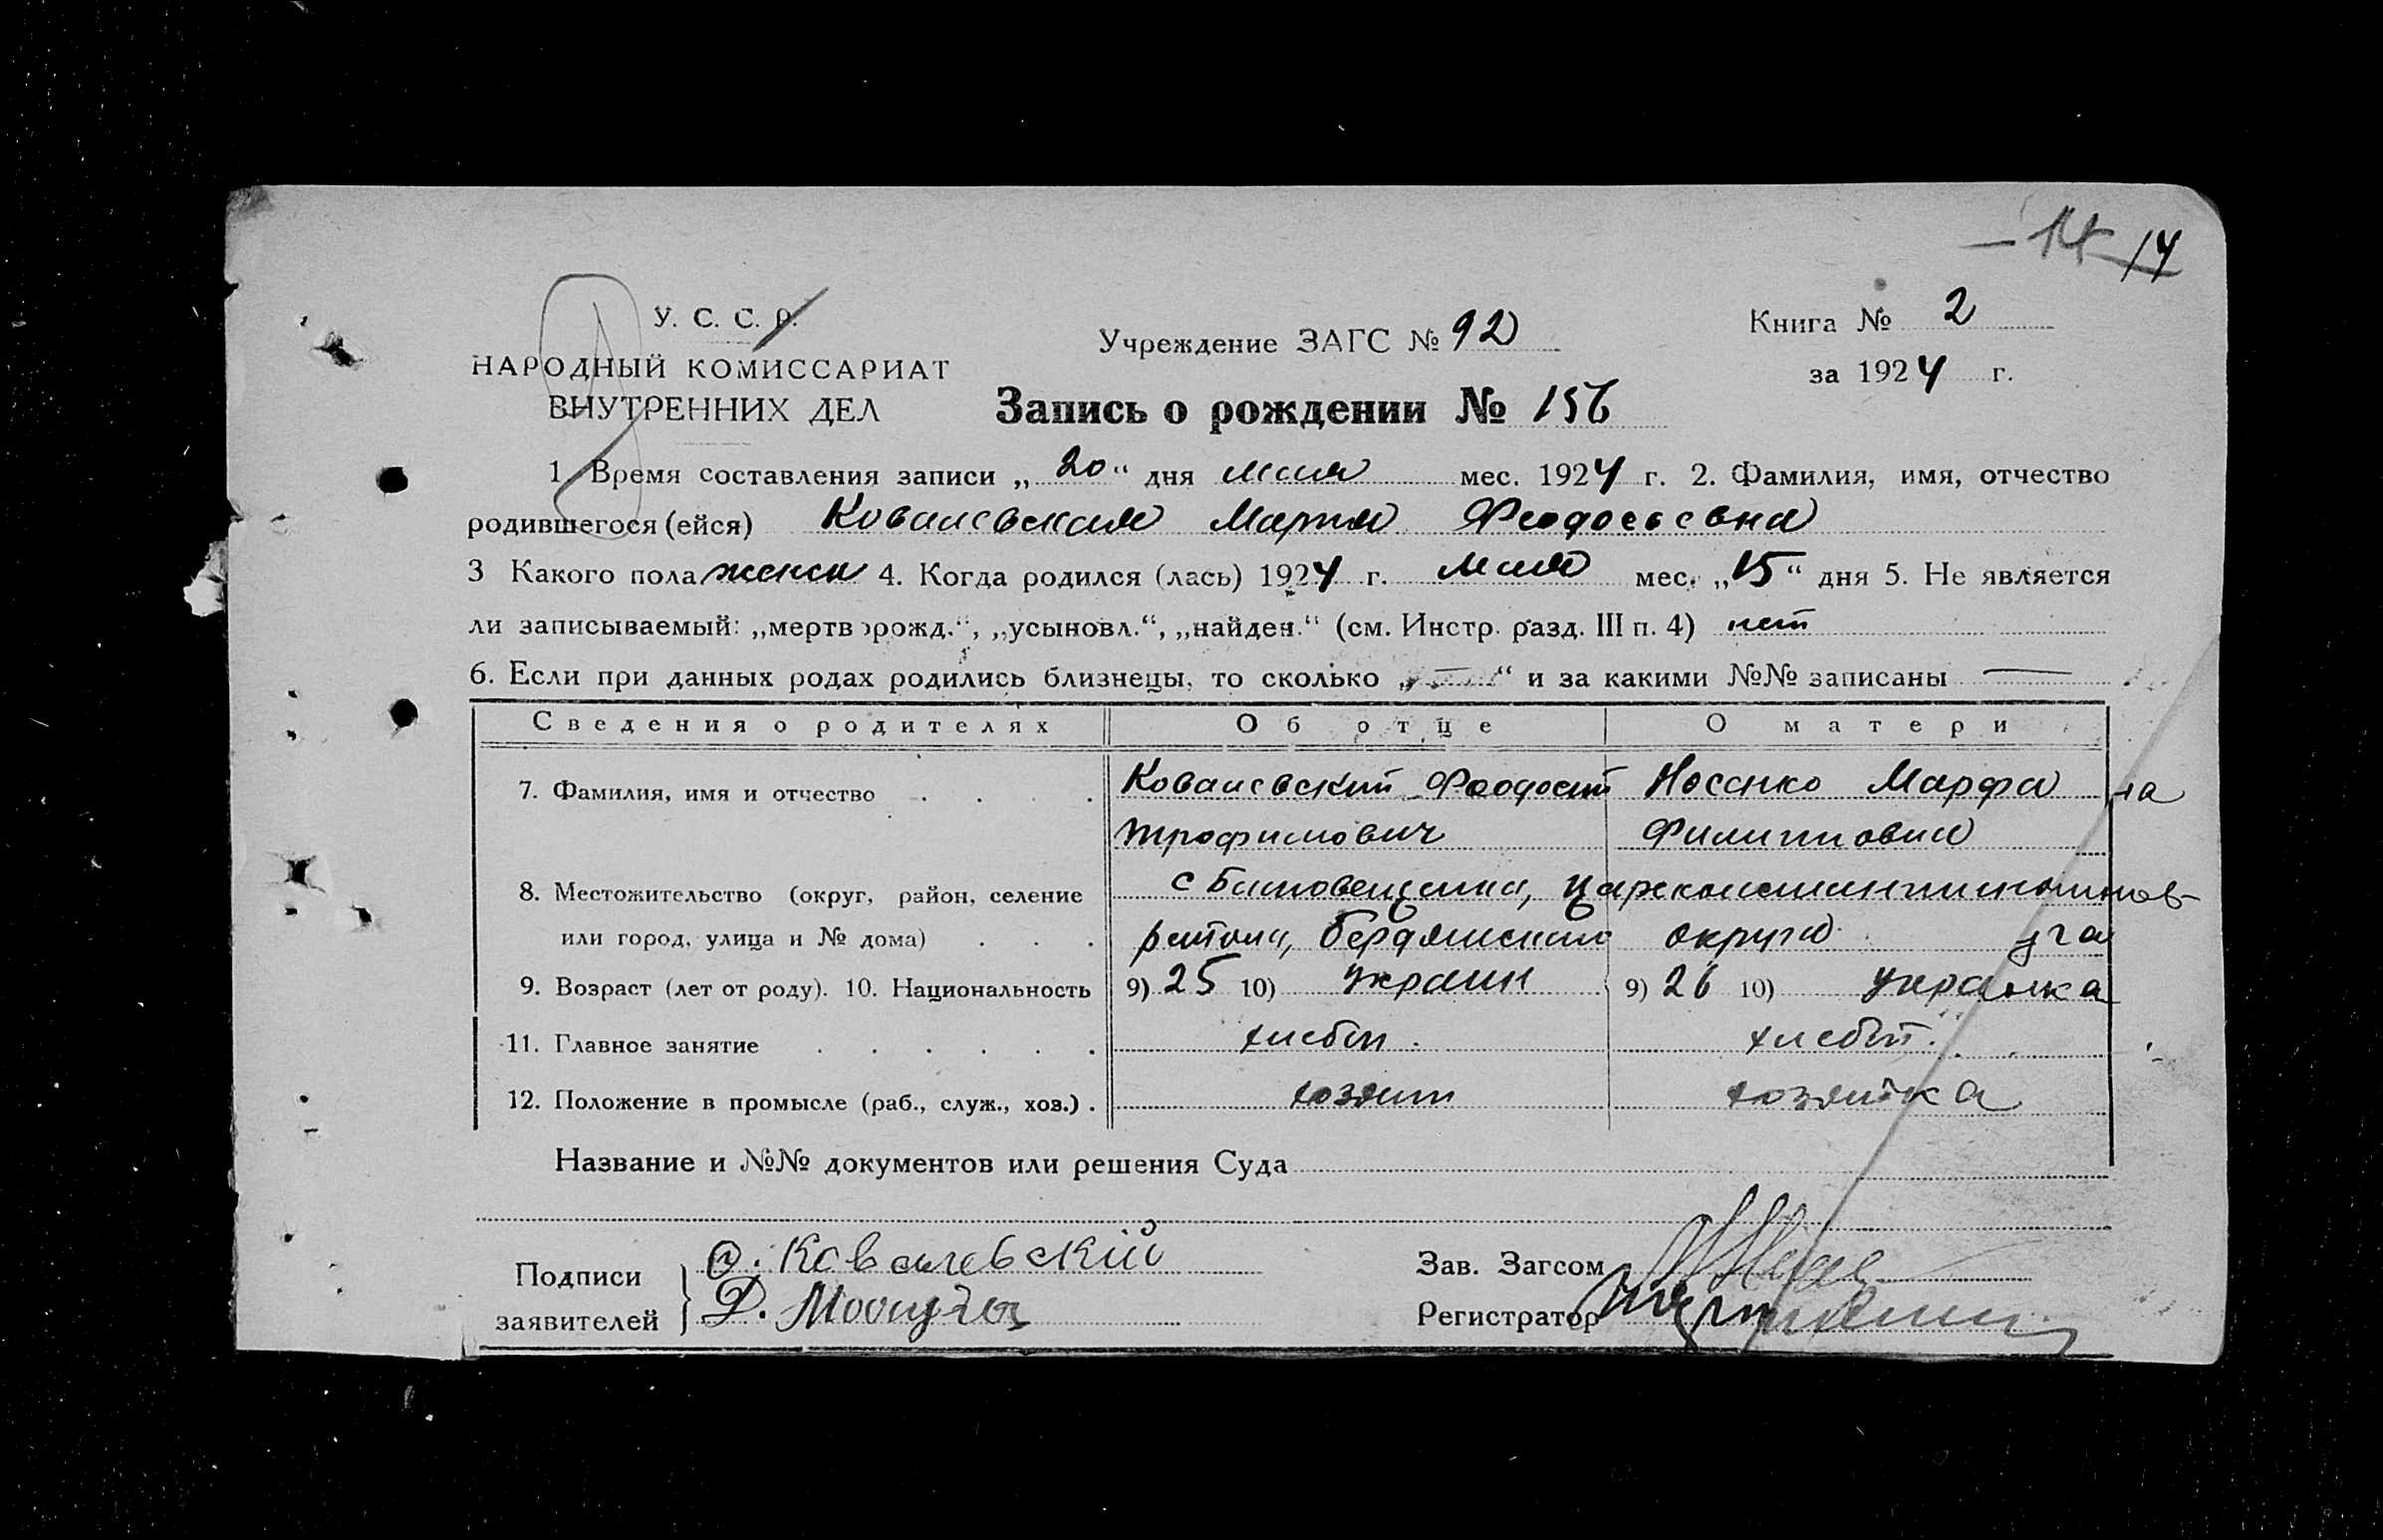 14 14
У. С. С. Р.
НАРОДНЫЙ КОМИССАРИАТ
ВНУТРЕННИХ ДЕЛ
Учреждение ЗАГС № 92
Книга № 2
за 1924 г.
Запись о рождении № 156
1. Время составления записи „20“ дня мая мес. 1924 г. 2. Фамилия, имя, отчество
родившегося (ейся) Ковалевская Мария Феодосьевна
3 Какого пола женск 4. Когда родился (лась) 1924 г. мая мес. „15“ дня 5. Не является
ли записываемый: „мертворожд.“, „усыновл.“, „найден.“ (см. Инстр. разд. III п. 4) нет
6. Если при данных родах родились близнецы, то сколько „—“ и за какими №№ записаны —
Сведения о родителях Об отце О матери
7. Фамилия, имя и отчество . . . . Ковалевский Феодосий Носенко Марфа
Трофимович Филипповна
8. Местожительство (округ, район, селение с Благовещенка, Царсконстантиновск-
или город, улица и № дома) . . . района, Бердянского округа
9. Возраст (лет от роду). 10. Национальность 9) 25 10) украин 9) 26 10) украинка
11. Главное занятие . . . . . . хлебоп. хлебоп.
12. Положение в промысле (раб., служ., хоз.) . хозяин хозяйка
Название и №№ документов или решения Суда
Подписи заявителей } Ф. Ковалевский
Д.
Зав. Загсом
Регистратор